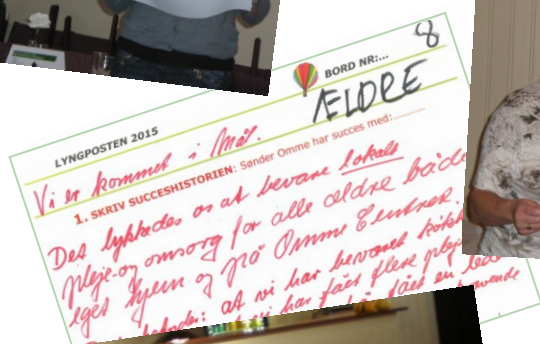 8
BORD NR:...
ÆLDRE
LYNGPOSTEN 2015
Vi er kommet i Mål.
1. SKRIV SUCCESHISTORIEN: Sønder Omme har succes med:............
Det lykkedes os at bevare lokals
pleje-og omsorg for alle ældre både
eget hjem og på Omme Centret.
: at vi har bevaret køkk
vi har fået flere pleje
fået en